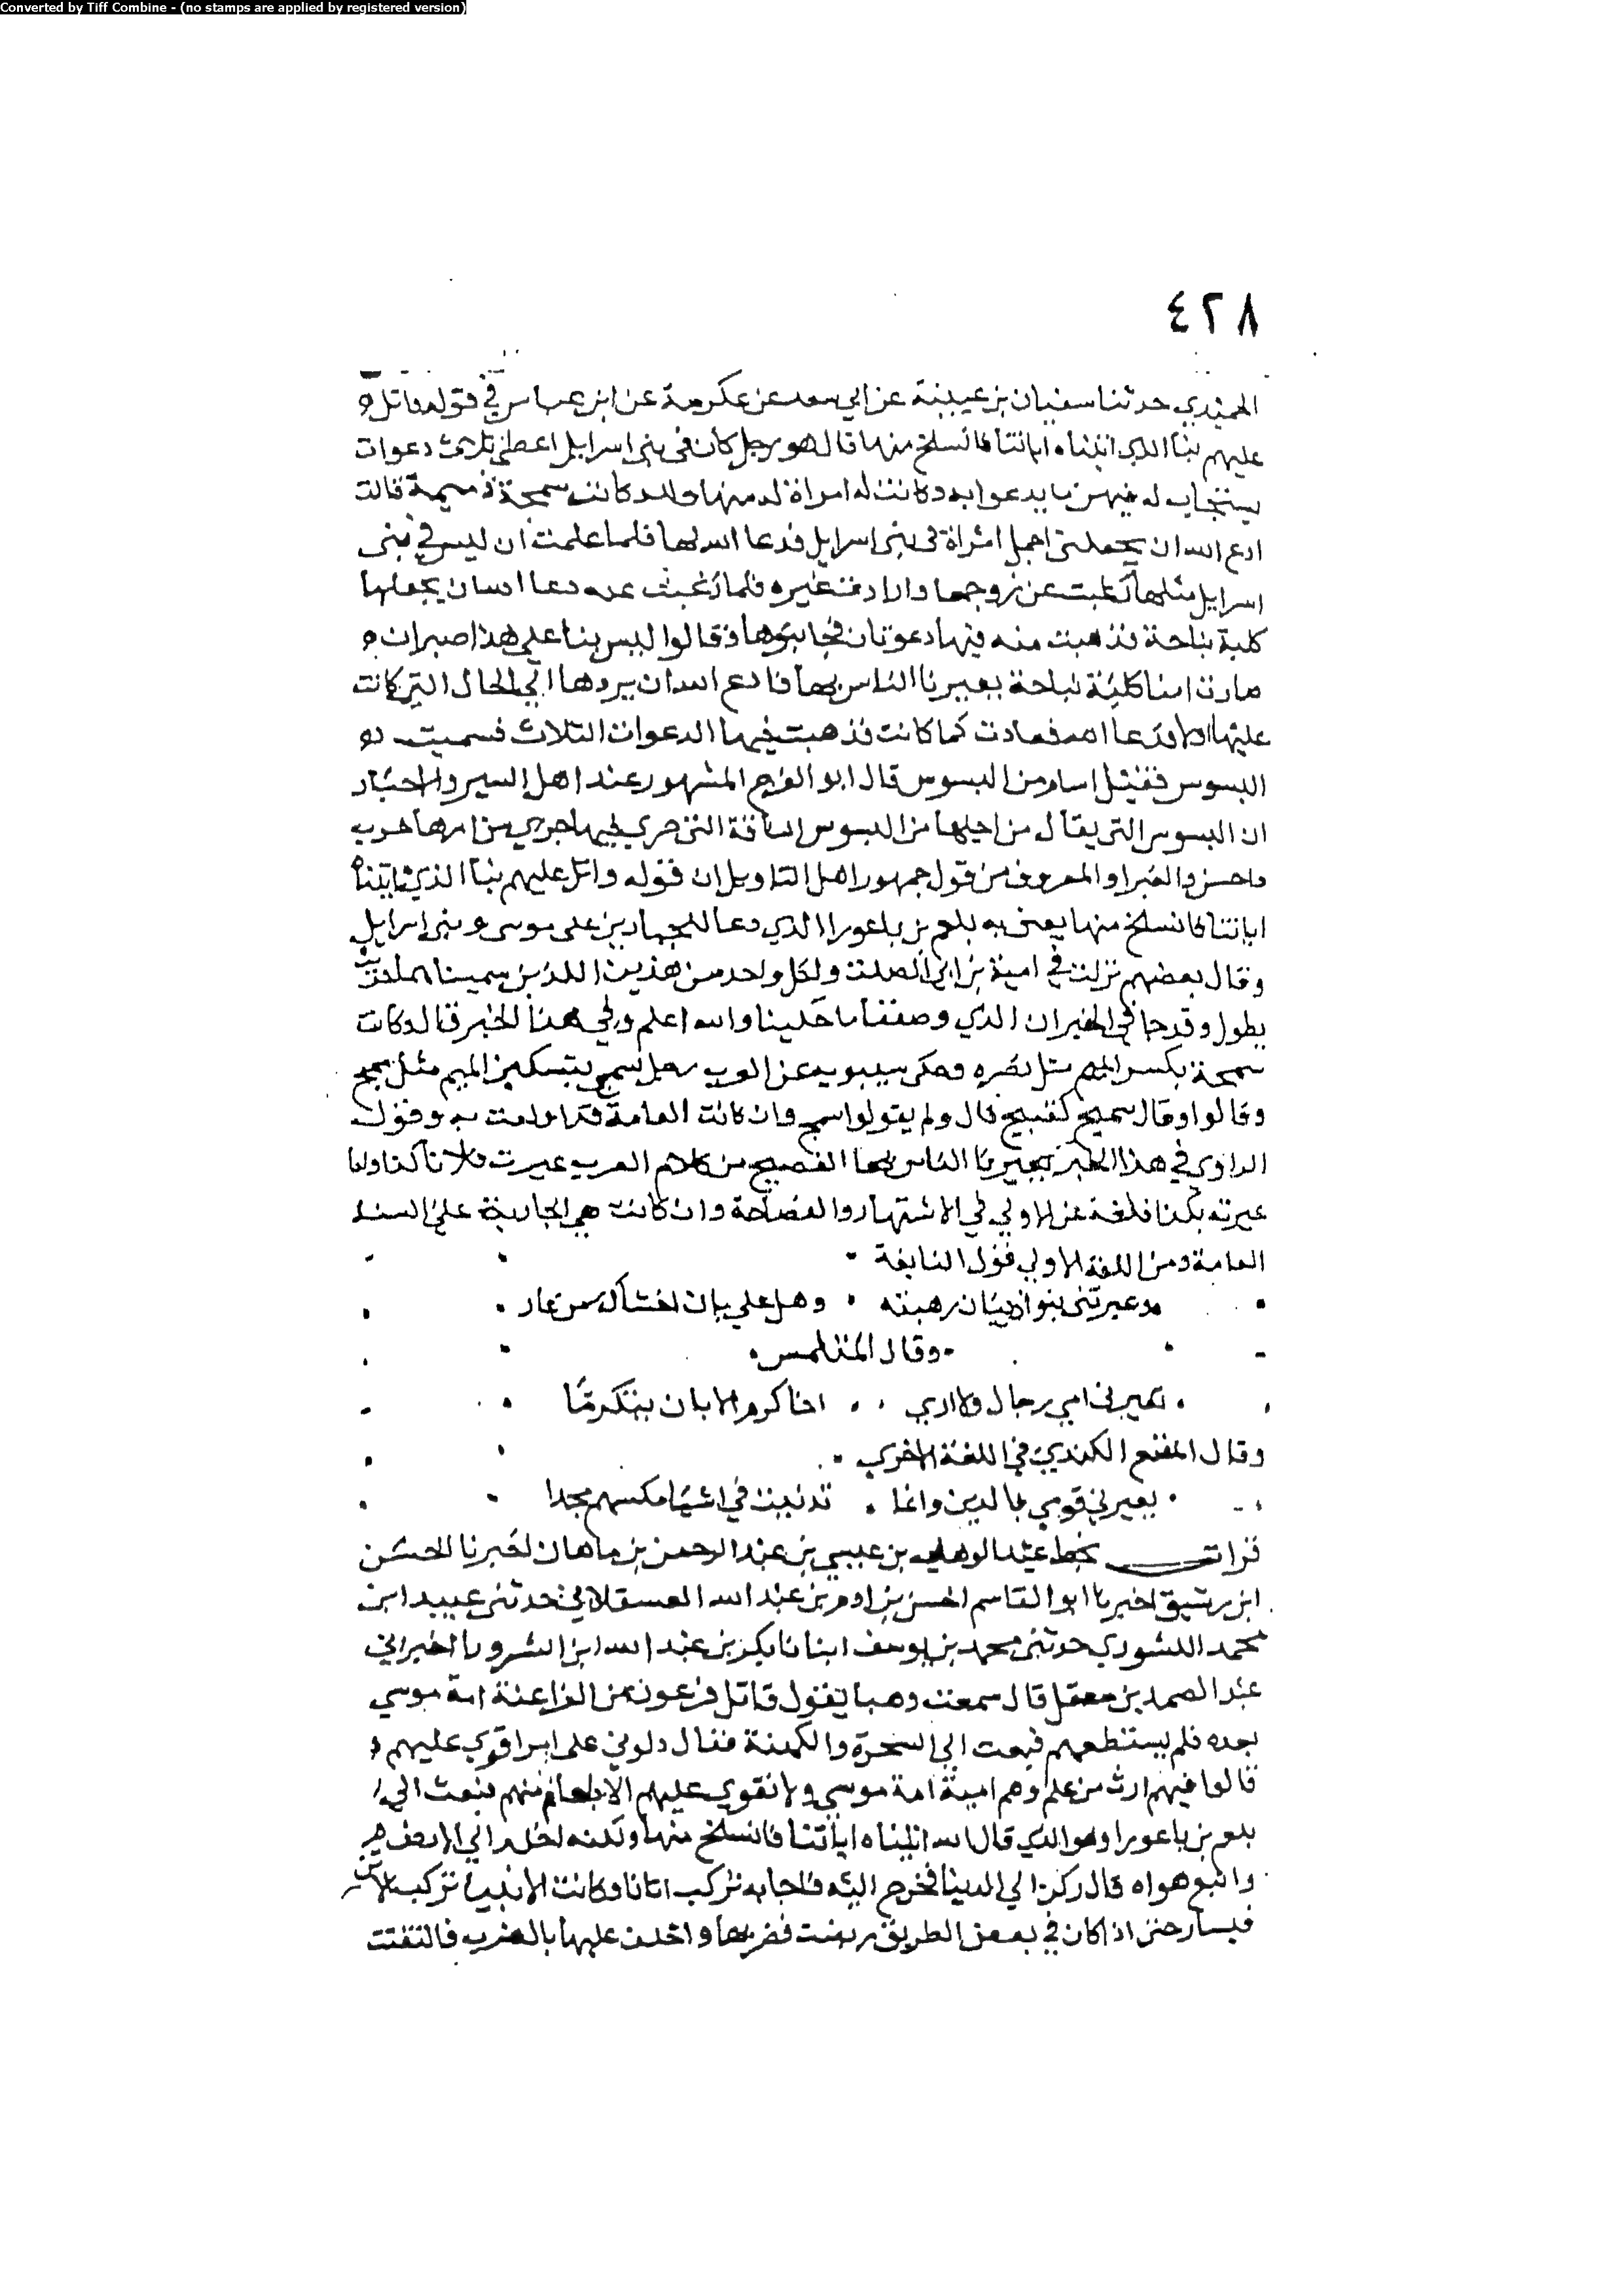 Converted by Tiff Combine - (no stamps are applied by registered version)
٤٢٨
الحميدي حدثنا سفيان بن عيينة عن ابي سعد عن عكرمة عن ابن عباس في قوله واتل
عليهم نبأ الذي اتيناه اياتنا فانسلخ منها قال هو رجل كان في بني اسرايل اعطي ثلاث دعوات
يستجاب له فيهن ما يدعوا به وكانت له امراة له منها ولد وكانت سمجة ذميمة قالت
ادع الله ان يجعلني اجمل امراة في بني اسرايل فدعا الله لها فلما علمت ان ليس في بني
اسرايل مثلها رغبت عن زوجها وارادت غيره فلما رغبت عنه دعا الله ان يجعلها
كلبة نباحة فذهبت منه فيها دعوتان فجا بنوها وقالوا ليس بنا على هذا صبر ان
صارت امنا كلبة نباحة يعيرنا الناس بها فادع الله ان يردها الي الحال التي كانت
عليها اولا فدعا الله فعادت كما كانت فذهبت فيها الدعوات الثلاث فسميت
البسوس فقيل اشام من البسوس قال ابو الفرج المشهور عند اهل السير والاخبار
ان البسوس التي يقال من اجلها من البسوس الناقة التي جري فيها جري من امرها حرب
داحس والغبرا والمعروف من قول جمهور اهل التاويل ان قوله واتل عليهم نبأ الذي اتيناه
اياتنا فانسلخ منها يعني به بلعم بن باعورا الذي دعا للجبارين على موسى وبني اسرايل
وقال بعضهم نزلت في امية بن ابي الصلت ولكل واحد من هذين اللذين سمينا حديث
يطول وقد جا في الخبران الذي وصفنا ما حكينا والله اعلم وفي هذا الخبر قال وكانت
سمجة بكسر الميم مثل نضره وحكى سيبويه عن العرب رجل سمج بتسكين الميم مثل
وقالوا وقال سميج كقبيح قال ولم يقولوا سمج وان كانت العامة قد اولعت به وقول
الراوي في هذا الخبر يعيرنا الناس بها الفصيح من كلام العرب عيرت فلانا كذا واما
عيرته بكذا فلغة عن الاولي في الاشتهار والفصاحة وان كانت هي الجارية على السنة
العامة ومن اللغة الاولي قول النابغة
وعيرتني بنو اذبيان رهبته وهل علي بان اخشاك من عار
وقال المتلمس
تعيرني امي رجال ولا اري اخا كرم الا بان يتكرما
وقال المقنع الكندي في اللغة الاخري
يعيرني قومي بالدين وانما تدينت في اشيا مكسبهم مجدا
قرات بخط عبد الوهاب بن عيسي بن عبد الرحمن بن ماهان اخبرنا الحسن
ابن رشيق اخبرنا ابو القاسم الحسن بن ادم بن عبد الله العسقلاني حدثني عبيد ابن
محمد الكشوري حدثني محمد بن يوسف ابنانا بكر بن عبد الله ابن الشرود اخبرني
عبد الصمد بن معقل قال سمعت وهبا يقول قاتل فرعون من الفراعنة امة موسي
بعده فلم يستطعهم فبعث الي السحرة والكهنة فقال دلوني على امر اقوي عليهم
قالوا فيهم ارث من علم وهم امة موسي ولا تقوي عليهم الا بلعام منهم فبعث الي
بلعم بن باعورا وهو الذي قال الله اتيناه اياتنا فانسلخ منها ولكنه اخلد الي الارض
واتبع هواه قال ركن الي الدنيا فخرج اليه فاجابه فركب اتانا وكانت الانبيا تركب الاتن
فسار حتى اذا كان في بعض الطريق ربضت فضربها واخذ عليها بالضرب فالتفتت